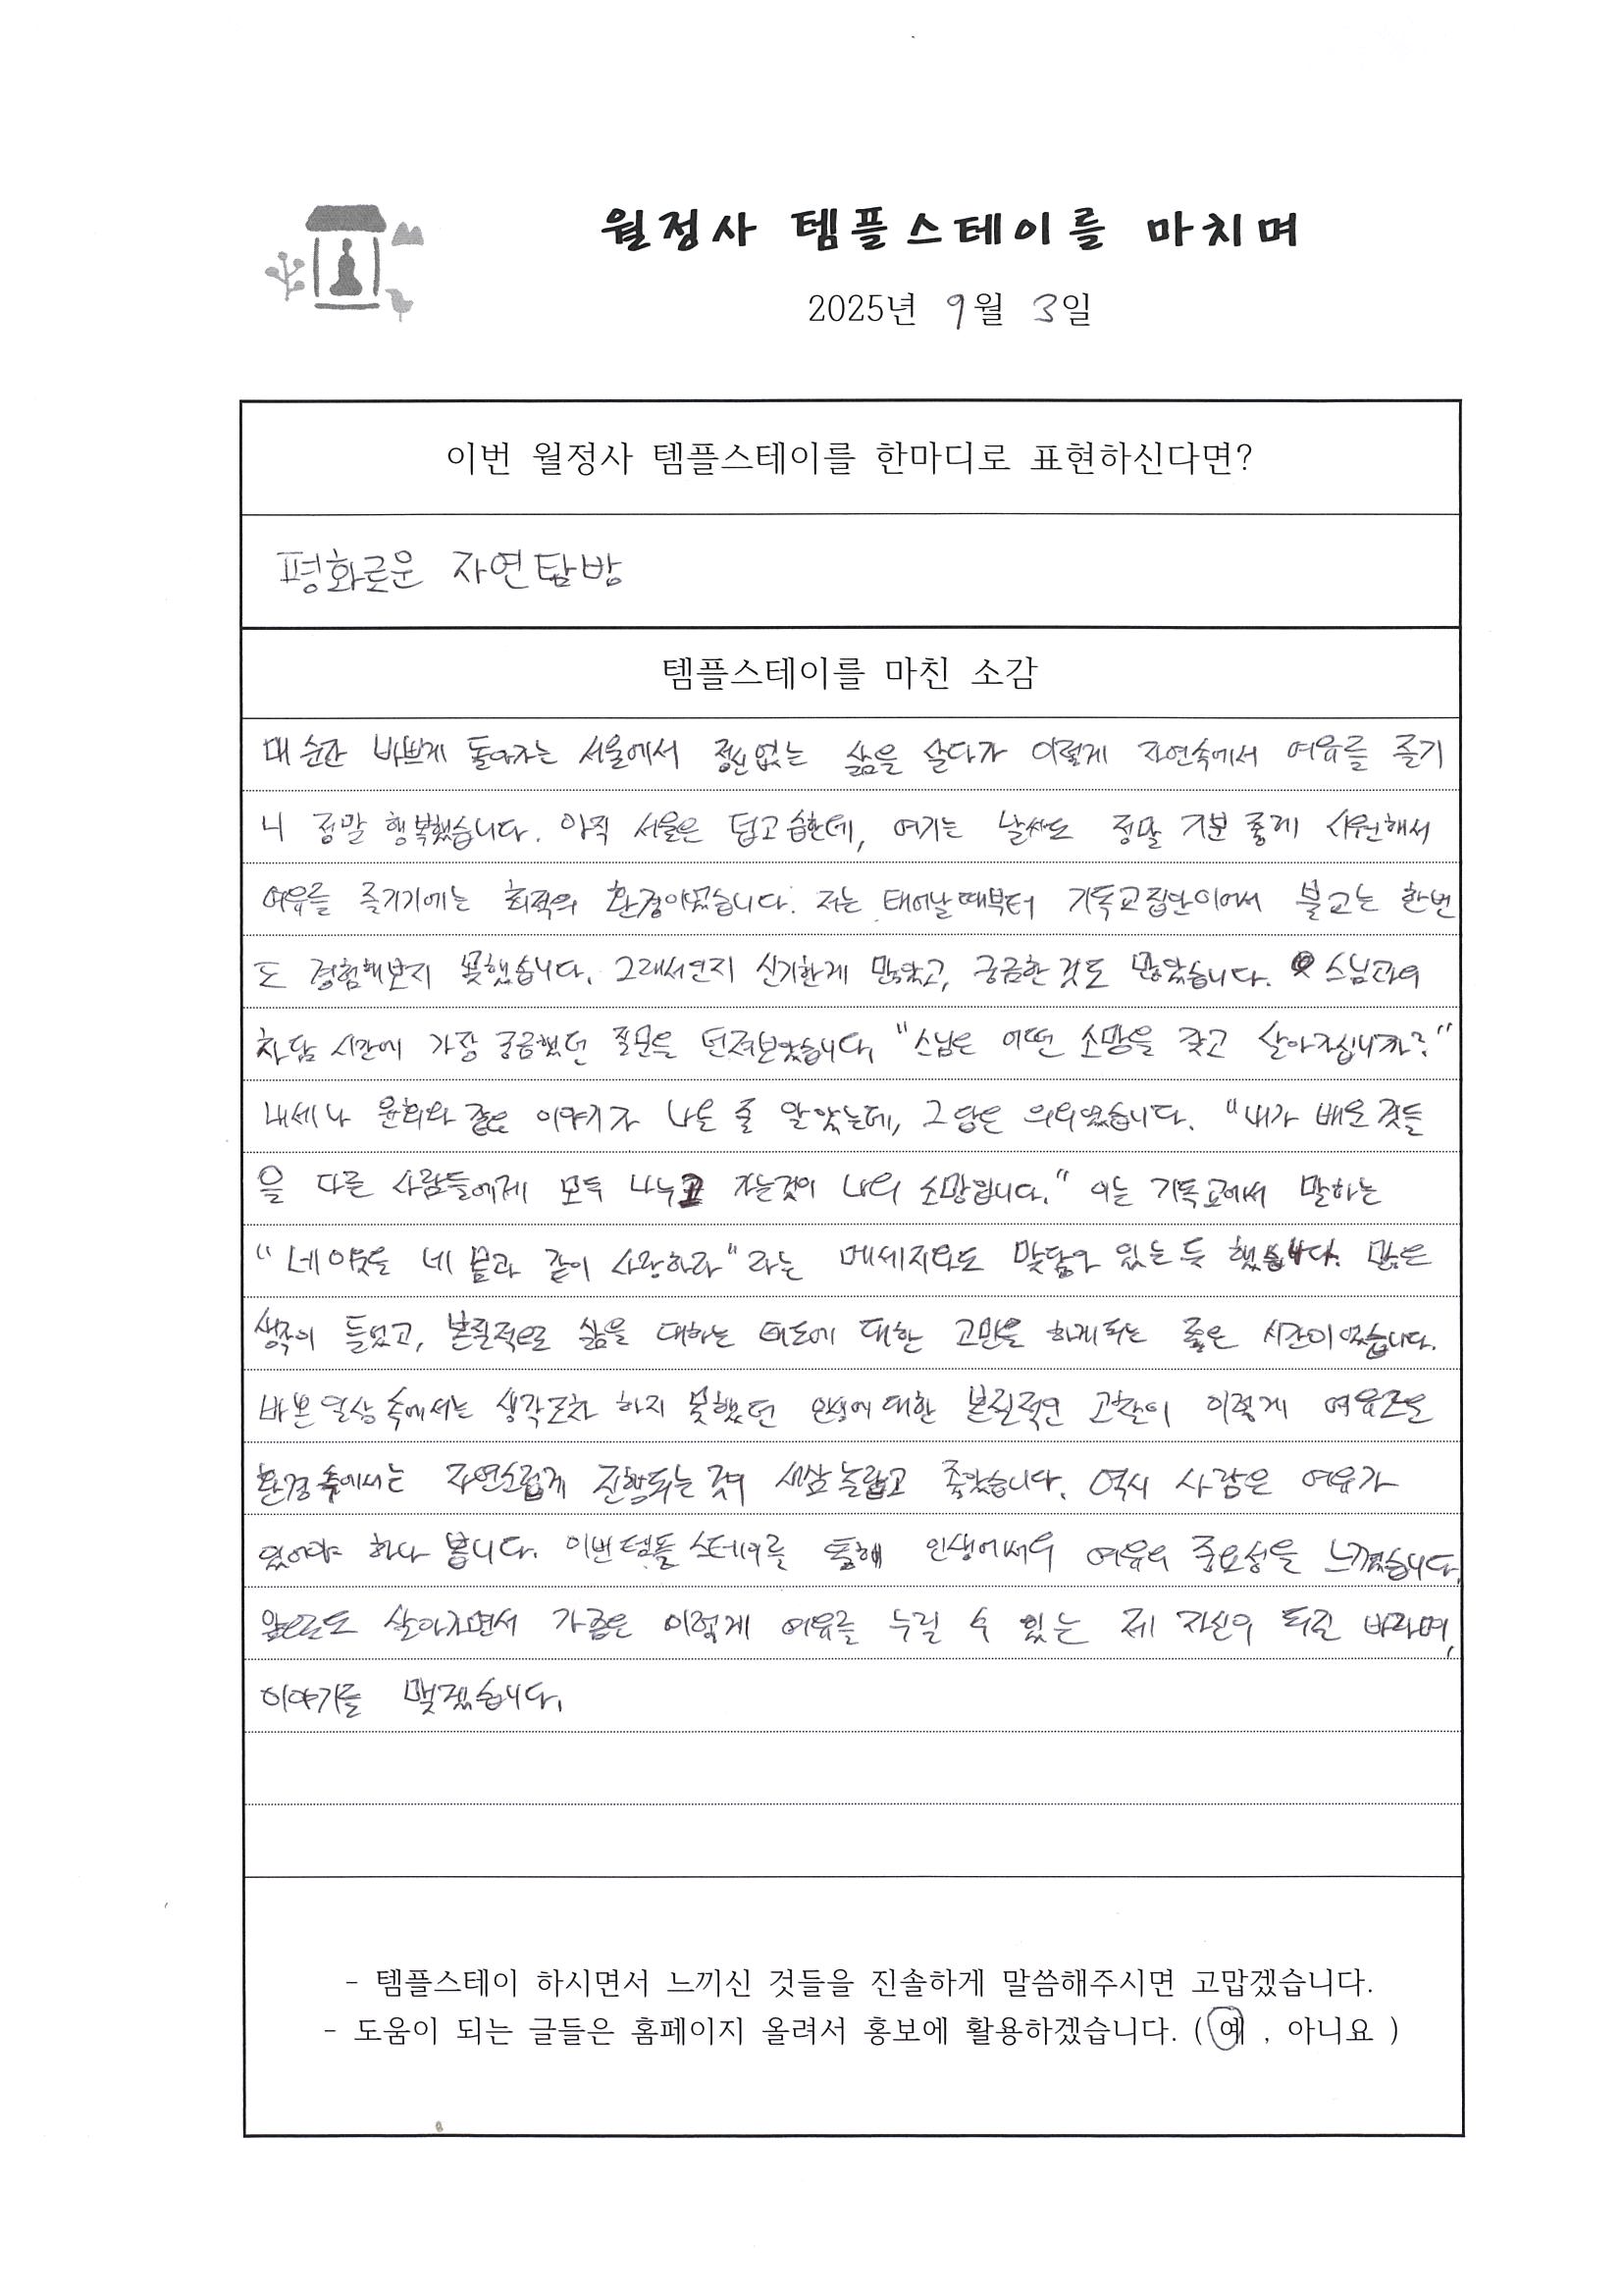 월정사 템플스테이를 마치며
2025년 9월 3일
이번 월정사 템플스테이를 한마디로 표현하신다면?
평화로운 자연탐방
템플스테이를 마친 소감
매 순간 바쁘게 돌아가는 서울에서 정신없는 삶을 살다가 이렇게 자연속에서 여유를 즐기
니 정말 행복했습니다. 아직 서울은 덥고 습한데, 여기는 날씨도 정말 기분 좋게 시원해서
여유를 즐기기에는 최적의 환경이었습니다. 저는 태어날때부터 기독교집안이어서 불교는 한번
도 경험해보지 못했습니다. 그래서인지 신기한게 많았고, 궁금한 것도 많았습니다. 스님과의
차담 시간에 가장 궁금했던 질문을 던져보았습니다. "스님은 어떤 소망을 갖고 살아가십니까?"
내세나 윤회와 같은 이야기가 나올 줄 알았는데, 그 답은 의외였습니다. "내가 배운 것들
을 다른 사람들에게 모두 나누고 가는것이 나의 소망입니다." 이는 기독교에서 말하는
"네 이웃을 네 몸과 같이 사랑하라"라는 메세지와도 맞닿아 있는 듯 했습니다. 많은
생각이 들었고, 본질적으로 삶을 대하는 태도에 대한 고민을 하게되는 좋은 시간이었습니다.
바쁜 일상 속에서는 생각조차 하지 못했던 인생에 대한 본질적인 고찰이 이렇게 여유로운
환경 속에서는 자연스럽게 진행되는 것이 새삼 놀랍고 좋았습니다. 역시 사람은 여유가
있어야 하나 봅니다. 이번 템플 스테이를 통해 인생에서의 여유의 중요성을 느꼈습니다.
앞으로도 살아가면서 가끔은 이렇게 여유를 누릴 수 있는 제 자신이 되길 바라며,
이야기를 맺겠습니다.
- 템플스테이 하시면서 느끼신 것들을 진솔하게 말씀해주시면 고맙겠습니다.
- 도움이 되는 글들은 홈페이지 올려서 홍보에 활용하겠습니다. ( 예 , 아니요 )